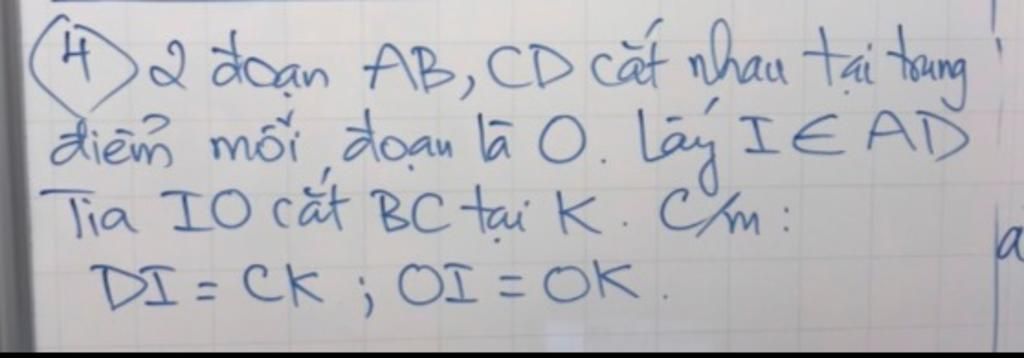 4 2 đoạn AB, CD cắt nhau tại trung
điểm mỗi đoạn là O. Lấy I ∈ AD
Tia IO cắt BC tại K. C/m:
DI = CK ; OI = OK.
a